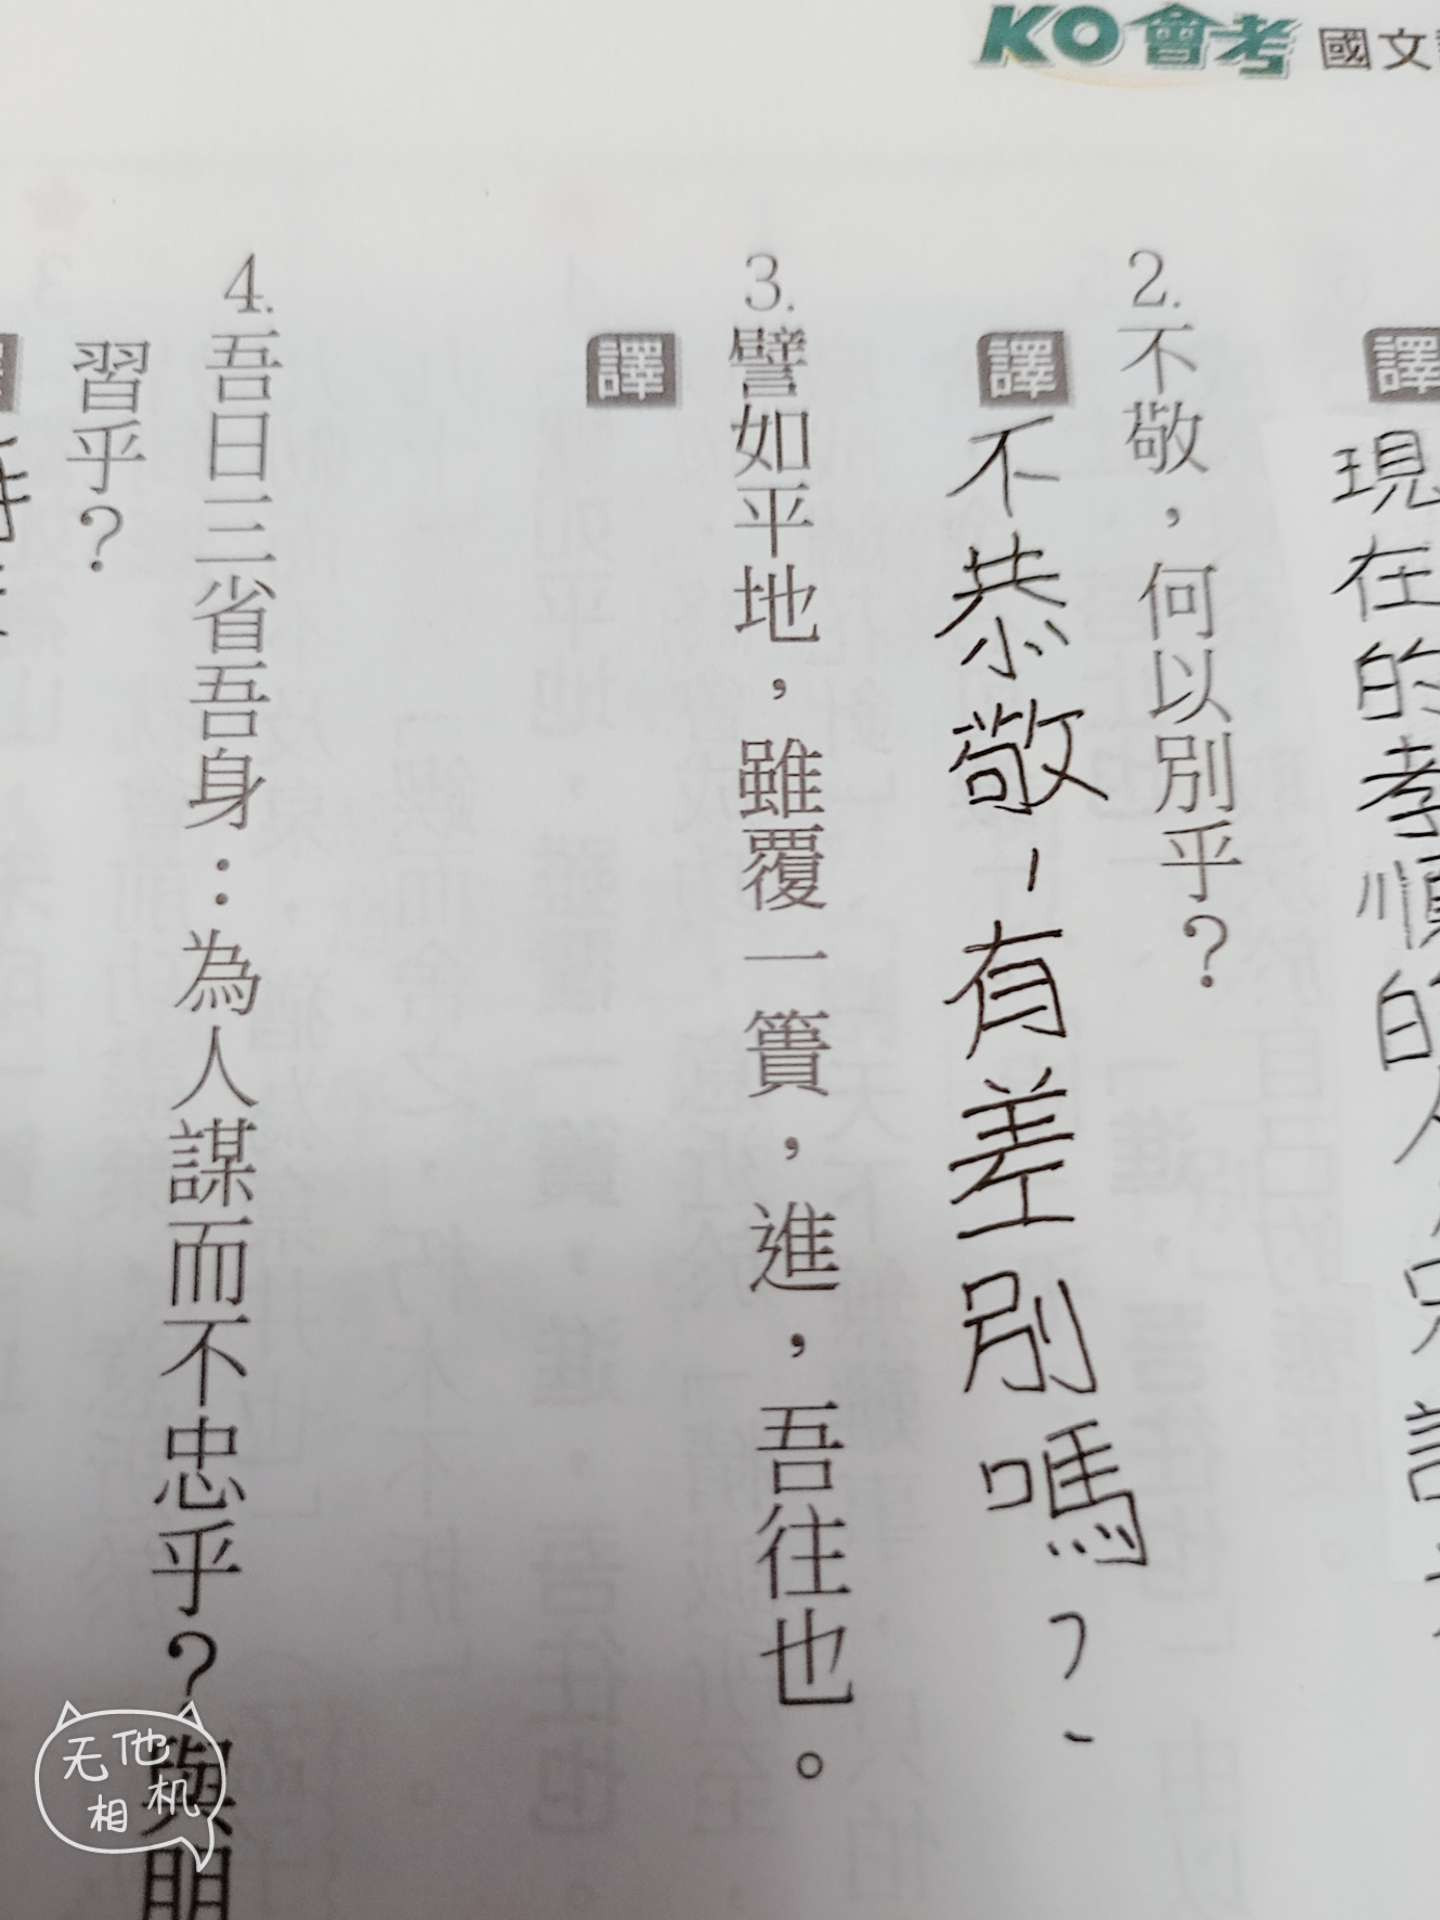 KO會考 國文
譯 現在的孝順的
2.不敬，何以別乎？
譯 不恭敬，有差別嗎？
3.譬如平地，雖覆一簣，進，吾往也。
譯
4.吾日三省吾身：為人謀而不忠乎？與朋
習乎？
无他相机